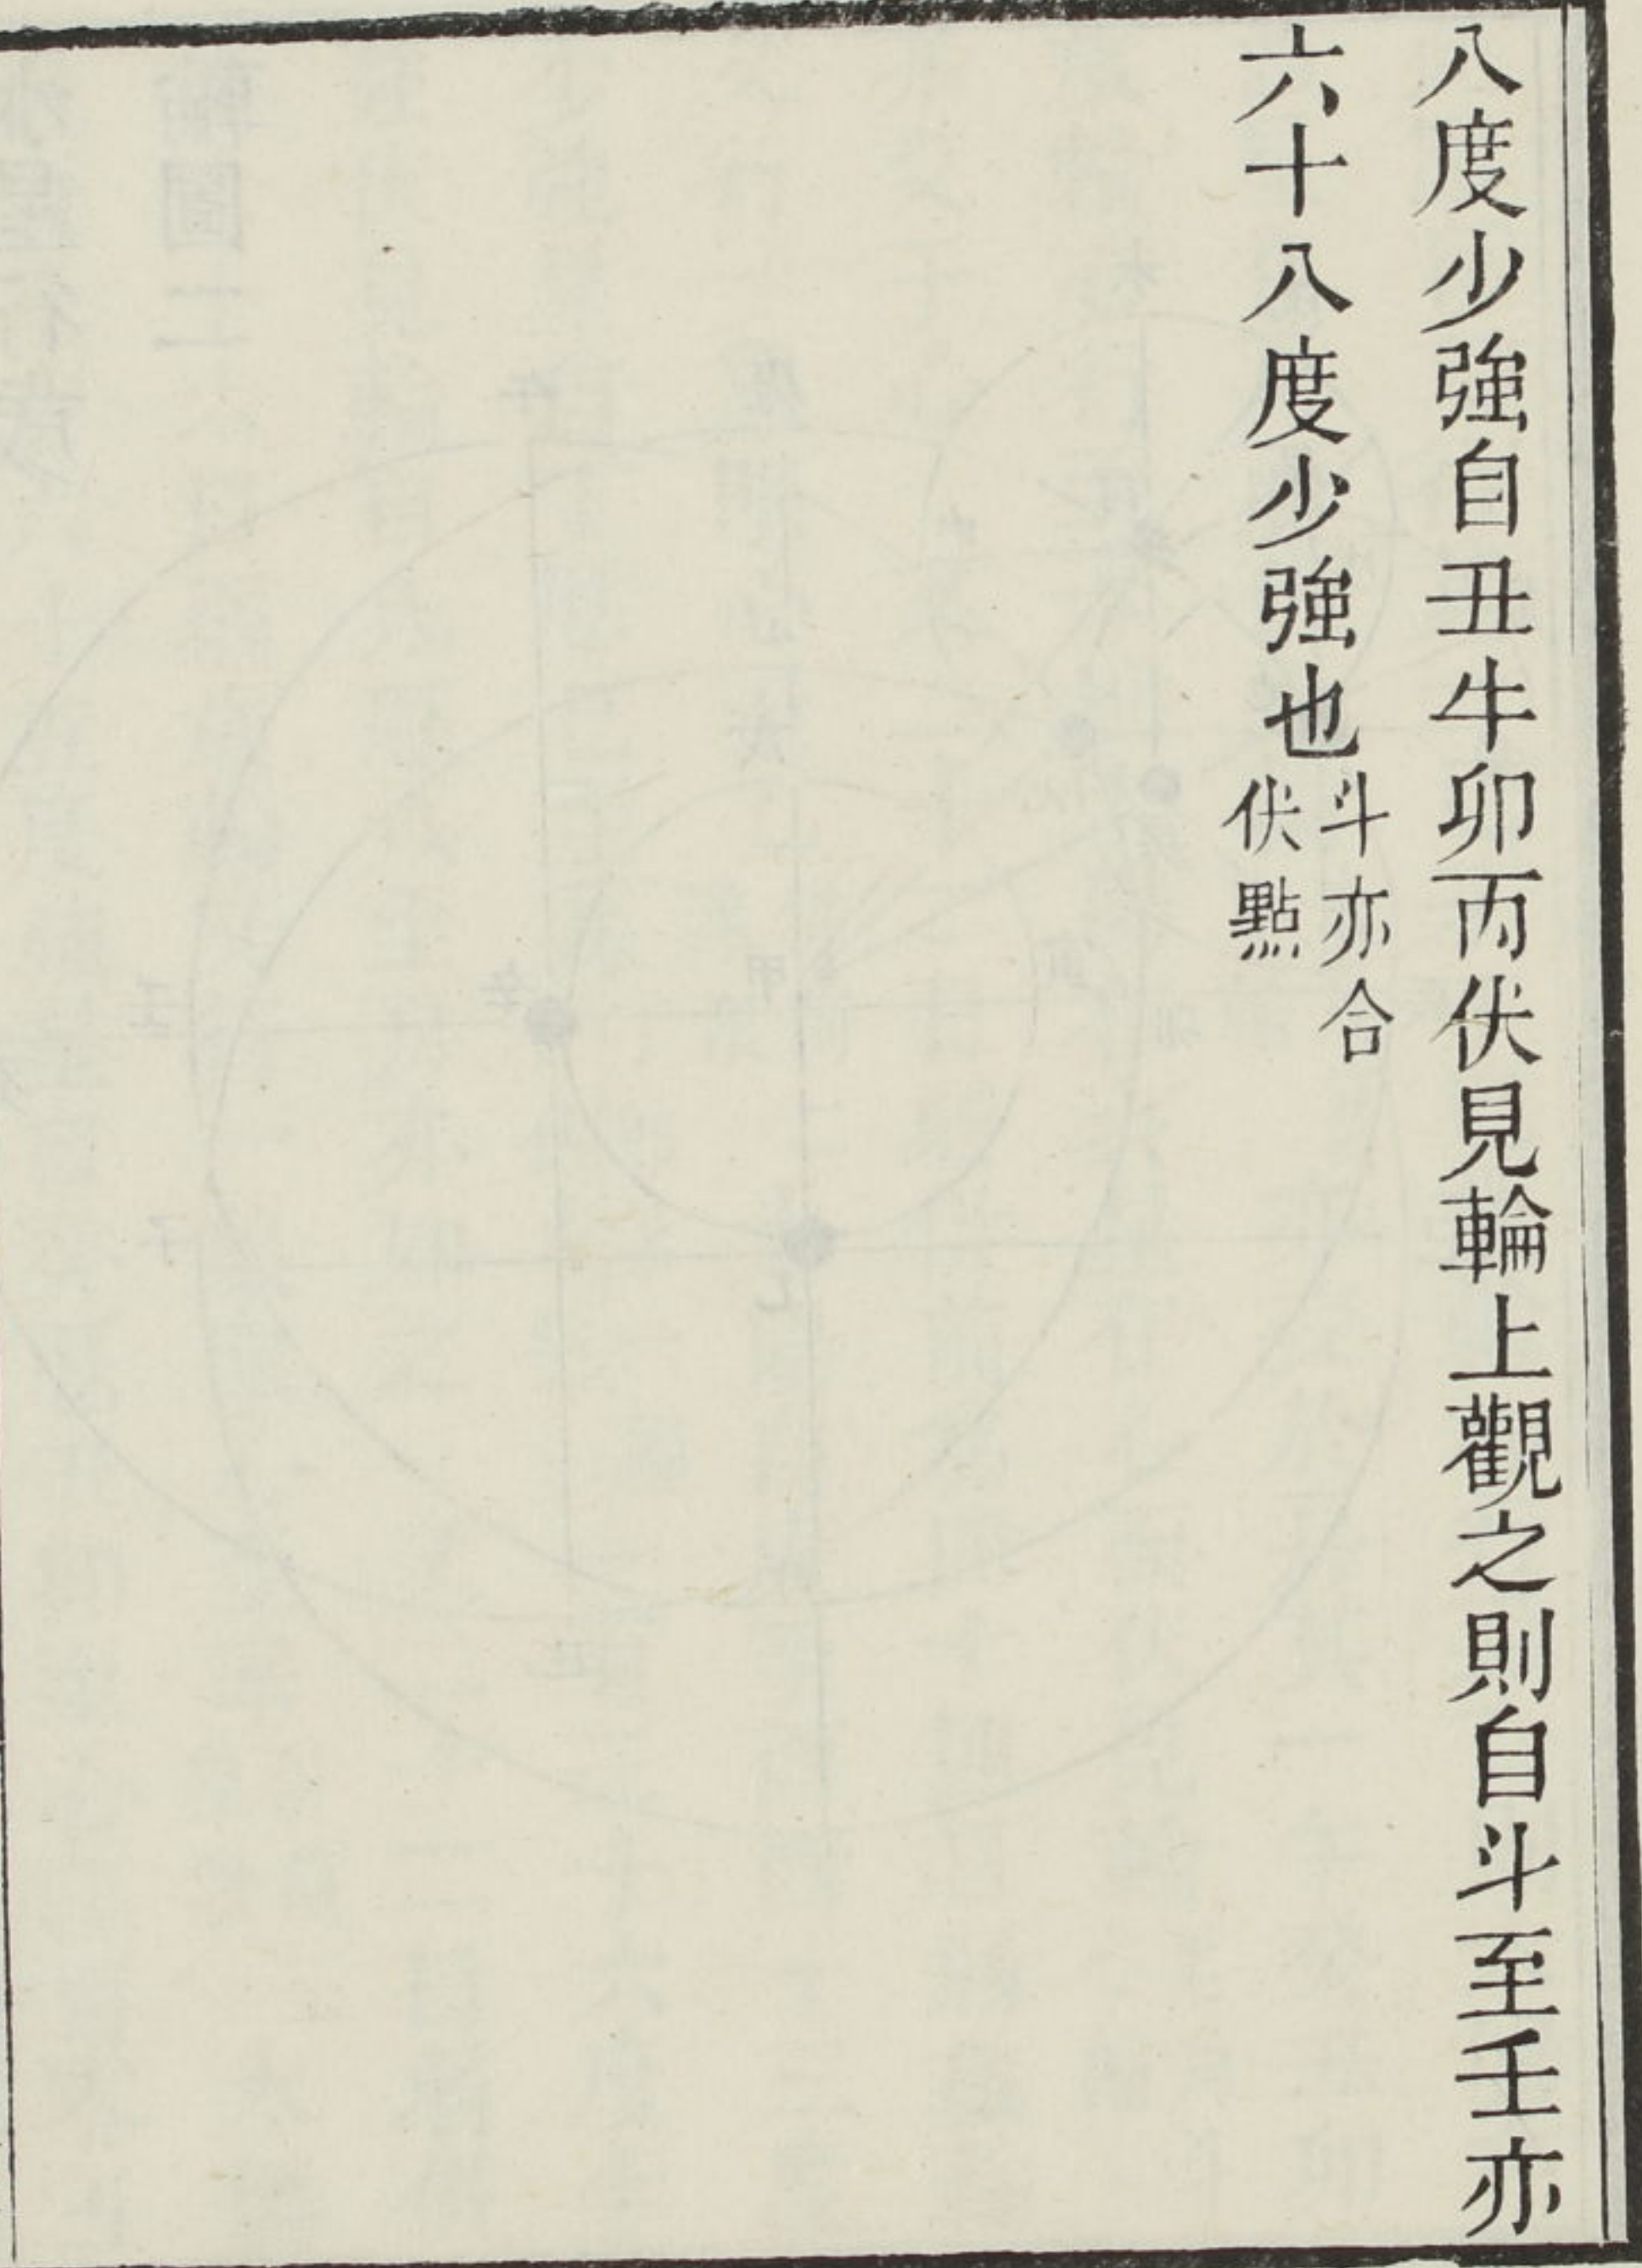 八度少強自丑牛卯丙伏見輪上觀之則自斗至壬亦
六十八度少強也斗亦合
伏點